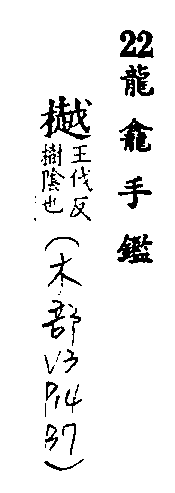 22龍龕手鑑
樾王伐反樹陰也(木部V3P.1437)